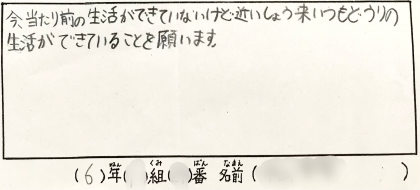 今、当たり前の生活ができていないけど近いしょう来いつもどうりの
生活ができていることを願います。
(6)年( )組( )番 名前( )